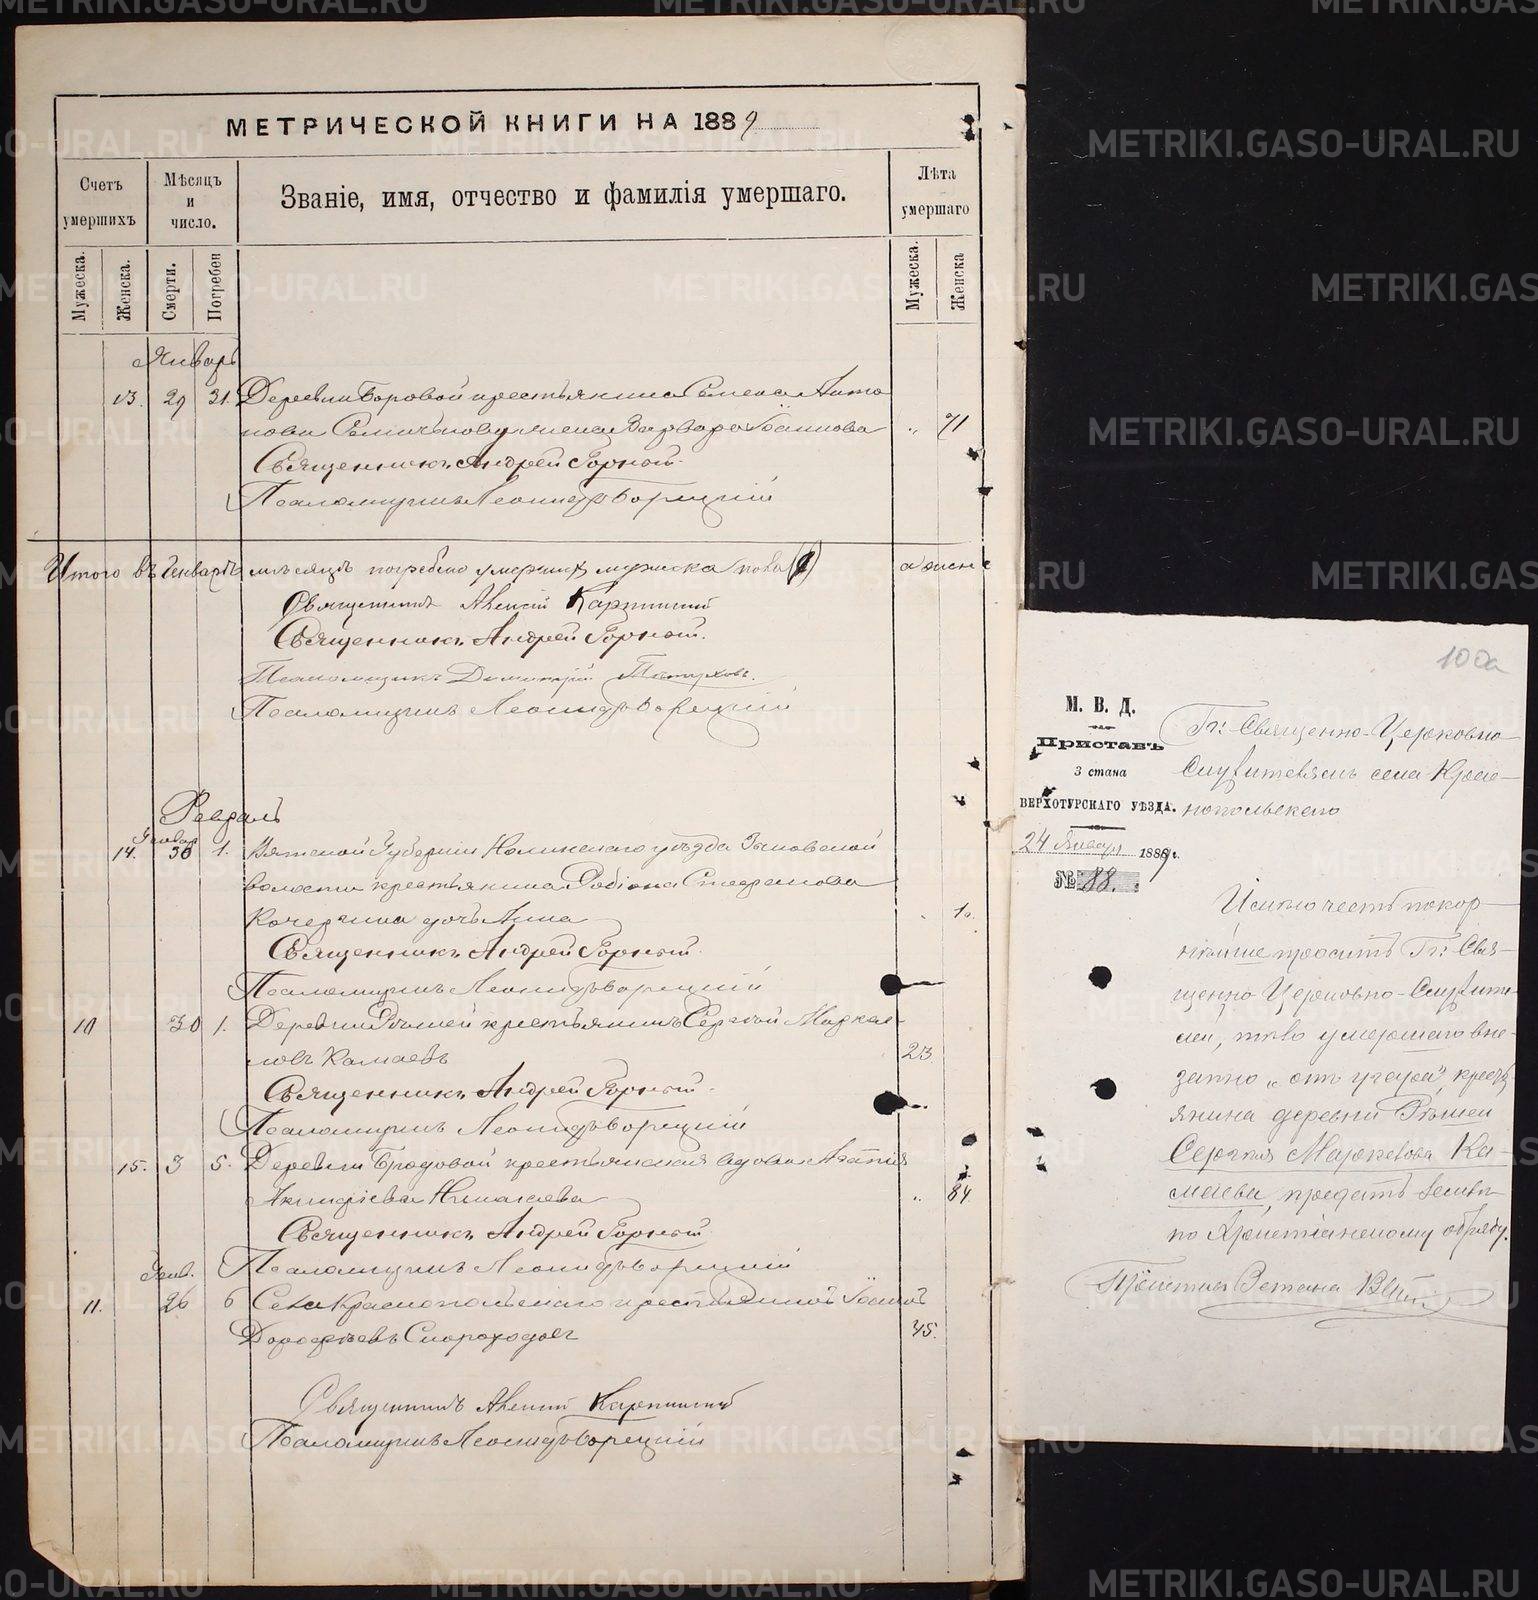 МЕТРИЧЕСКОЙ КНИГИ НА 1889
Счетъ умершихъ
Мѣсяцъ и число.
Званіе, имя, отчество и фамилія умершаго.
Лѣта умершаго
Мужеска.
Женска.
Смерти.
Погребен
Мужеска.
Женска
Январь
13. 29 31. Деревни Боровой крестьянина Семена Анто
нова жена Варвара Іоаннова „ 71
Священникъ Андрей Горный.
Псаломщикъ Леонидъ Ворецкій
Итого въ Январѣ мѣсяцѣ погребено умершихъ мужска пола а женс
Священникъ Алексій Карпинскій
Священникъ Андрей Горный.
Псаломщикъ Димитрій
Псаломщикъ Леонидъ Ворецкій
Февраль
Январ
14. 30 1. Вятской Губерніи Нолинскаго уѣзда Зыковской
волости крестьянина Родіона Стефанова
Кочергина дочь Анна 1.
Священникъ Андрей Горный.
Псаломщикъ Леонидъ Ворецкій
10 30 1. Деревни Рѣшей крестьянинъ Сергѣй Маркел-
ловъ Камаевъ 23
Священникъ Андрей Горный.
Псаломщикъ Леонидъ Ворецкій
15. 3 5. Деревни Бродовой крестьянская вдова Агапія
Акинфіева „ 84
Священникъ Андрей Горный
Псаломщикъ Леонидъ Ворецкій
Янв.
11. 26 6 Села Краснопольскаго крестьянинъ Іоаннъ
Дорофѣевъ Скороходовъ 45.
Священникъ Алексій Карпинскій
Псаломщикъ Леонидъ Ворецкій
100а
М. В. Д.
Приставъ
3 стана
ВЕРХОТУРСКАГО УѢЗДА.
24 Января 1889 г.
№ 88.
Гг. Священно-Церковно
Служителямъ села Крас-
нопольскаго
Имѣю честь покор-
нѣйше просить Гг. Свя-
щенно Церковно-Служите-
лей, тѣло умершаго вне-
запно „отъ угара“, кресть-
янина деревни Рѣшей
Сергия Маркелова Ка-
маева, предать земли
по Христіанскому обряду.
Приставъ 3 стана